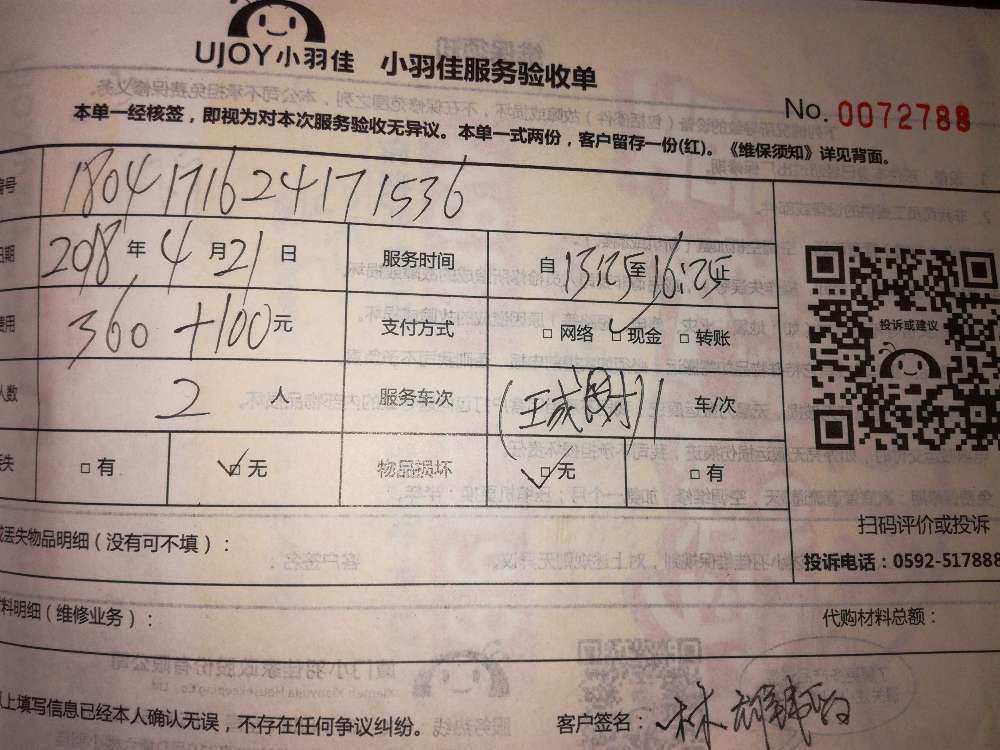 UJOY小羽佳 小羽佳服务验收单
No. 0072788
本单一经核签，即视为对本次服务验收无异议。本单一式两份，客户留存一份(红)。《维保须知》详见背面。
号 1804171624171536
日期 2018 年 4 月 21 日 服务时间 自 13:25 至 16:25 止
费用 360 +100 元 支付方式 □ 网络 ☑ 现金 □ 转账
人数 2 人 服务车次 1 车/次
失 □ 有 ☑ 无 物品损坏 ☑ 无 □ 有
投诉或建议
扫码评价或投诉
投诉电话：0592-517888
丢失物品明细（没有可不填）：
料明细（维修业务）： 代购材料总额：
上填写信息已经本人确认无误，不存在任何争议纠纷。 客户签名：林